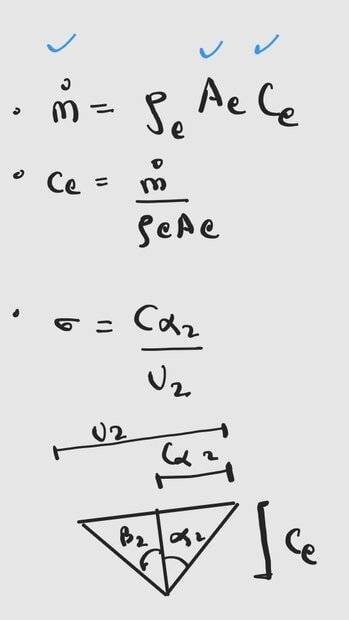 • ṁ = ρe Ae Ce
• Ce = ṁ / ρe Ae
• σ = Cα2 / U2
U2
Cα2
β2 α2 Ce